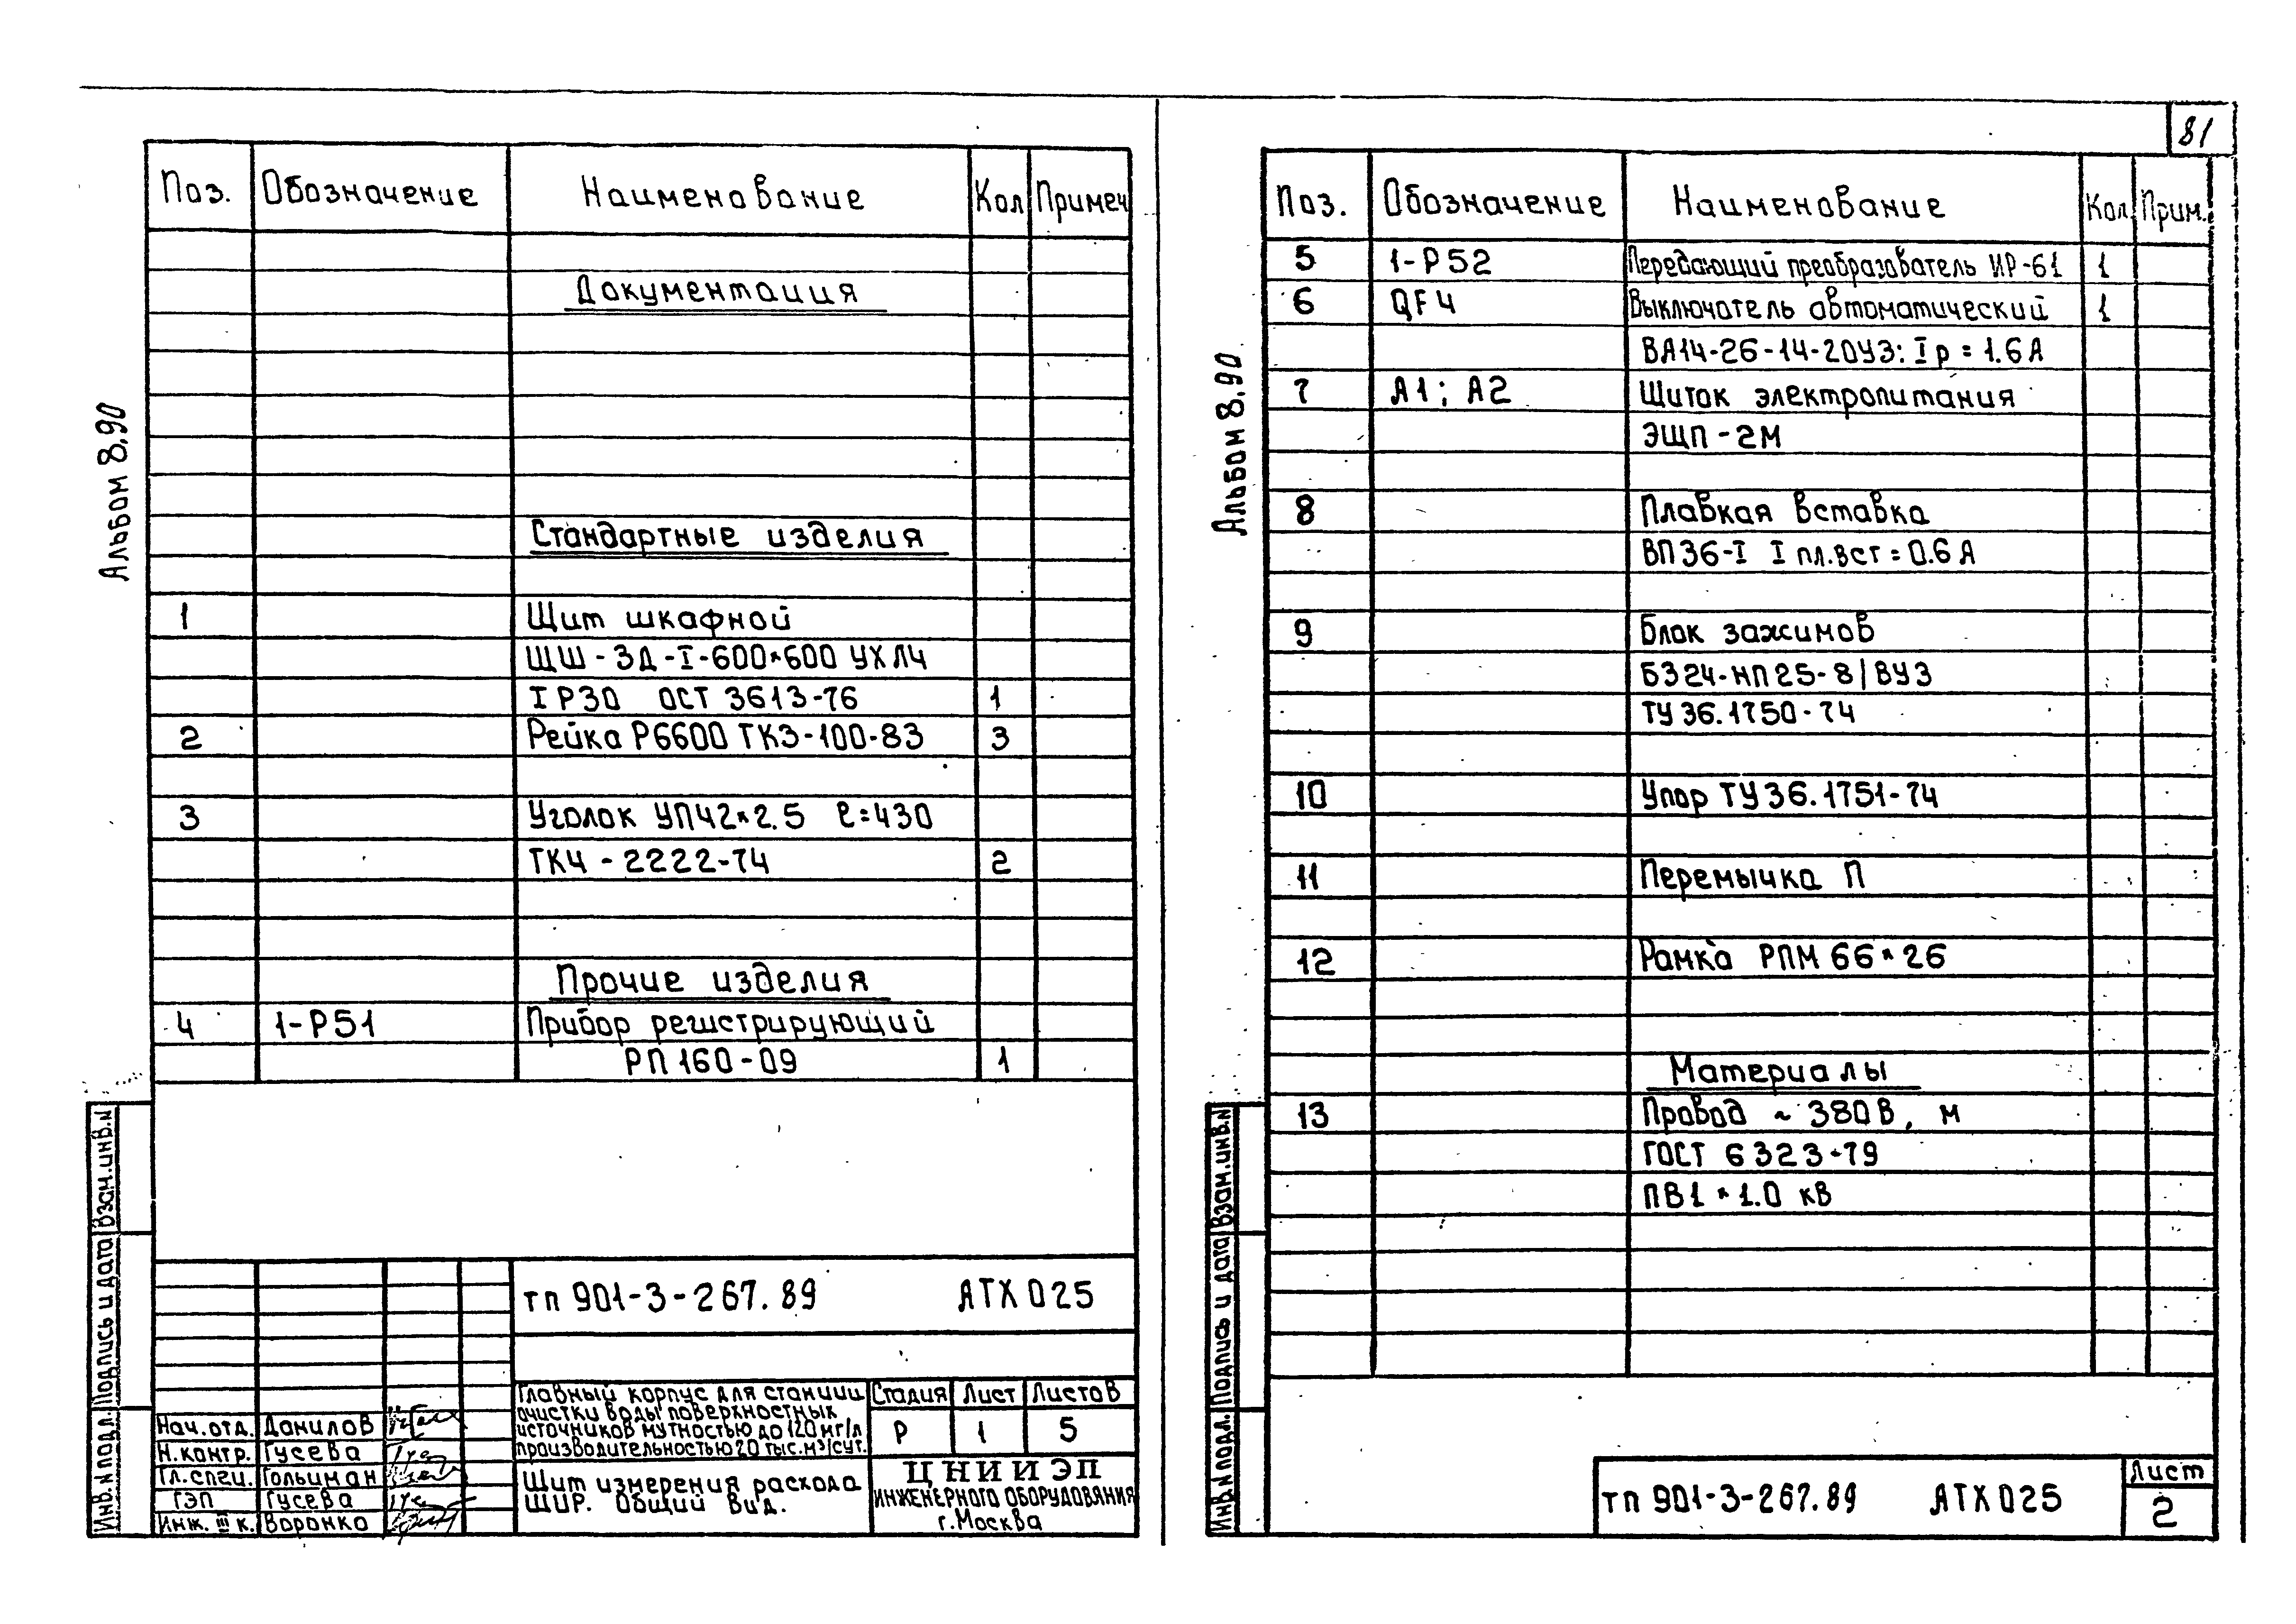 81
Альбом 8.90
Поз. Обозначение Наименование Кол Примеч
Документация
Стандартные изделия
1 Щит шкафной
ЩШ-ЗД-I-600×600 УХЛ4
IP30 ОСТ 3613-76 1
2 Рейка Р6600 ТК3-100-83 3
3 Уголок УП42×2.5 ℓ=430
ТК4-2222-74 2
Прочие изделия
4 1-Р51 Прибор регистрирующий
РП160-09 1
Инв.N подл. Подпись и дата Взам.инв.N
тп 901-3-267.89 АТХ025
Главный корпус для станции
очистки воды поверхностных
источников мутностью до 120 мг/л
производительностью 20 тыс.м³/сут.
Стадия Лист Листов
Р 1 5
Нач.отд. Данилов
Н.контр. Гусева
Гл.спец. Гольцман
ГЭП Гусева
Инж. III к. Воронко
Щит измерения расхода
ЩИР. Общий вид.
ЦНИИЭП
ИНЖЕНЕРНОГО ОБОРУДОВАНИЯ
г.Москва
Альбом 8.90
Поз. Обозначение Наименование Кол. Прим.
5 1-Р52 Передающий преобразователь ИР-61 1
6 QF4 Выключатель автоматический 1
ВА14-26-14-20У3: Iр=1.6А
7 А1; А2 Щиток электропитания
ЭЩП-2М
8 Плавкая вставка
ВП36-I I пл.вст=0.6А
9 Блок зажимов
БЗ24-НП25-8/ВУ3
ТУ36.1750-74
10 Упор ТУ36.1751-74
11 Перемычка П
12 Рамка РПМ 66×26
Материалы
13 Провод ~ 380В, м
ГОСТ 6323-79
ПВ1×1.0 кВ
Инв.N подл. Подпись и дата Взам.инв.N
тп 901-3-267.89 АТХ025
Лист
2